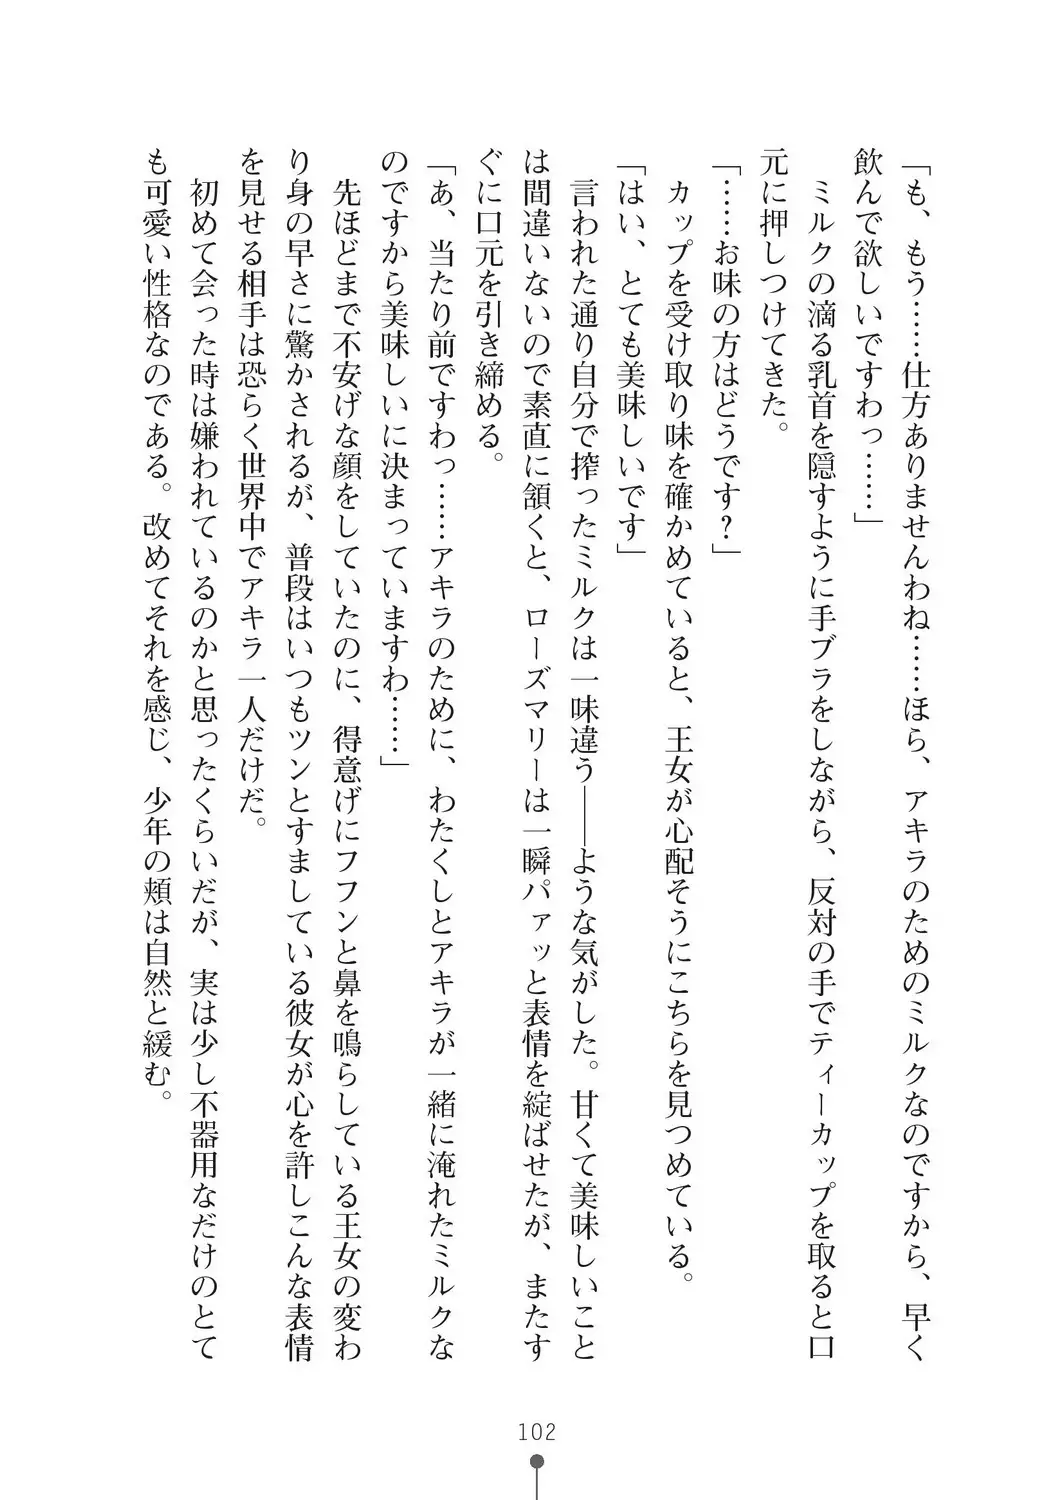 「も、もう……仕方ありませんわね……ほら、アキラのためのミルクなのですから、早く
飲んで欲しいですわっ……」
　ミルクの滴る乳首を隠すように手ブラをしながら、反対の手でティーカップを取ると口
元に押しつけてきた。
「……お味の方はどうです?」
　カップを受け取り味を確かめていると、王女が心配そうにこちらを見つめている。
「はい、とても美味しいです」
　言われた通り自分で搾ったミルクは一味違う――ような気がした。甘くて美味しいこと
は間違いないので素直に頷くと、ローズマリーは一瞬パァッと表情を綻ばせたが、またす
ぐに口元を引き締める。
「あ、当たり前ですわっ……アキラのために、わたくしとアキラが一緒に淹れたミルクな
のですから美味しいに決まっていますわ……」
　先ほどまで不安げな顔をしていたのに、得意げにフフンと鼻を鳴らしている王女の変わ
り身の早さに驚かされるが、普段はいつもツンとすましている彼女が心を許しこんな表情
を見せる相手は恐らく世界中でアキラ一人だけだ。
　初めて会った時は嫌われているのかと思ったくらいだが、実は少し不器用なだけのとて
も可愛い性格なのである。改めてそれを感じ、少年の頬は自然と緩む。
102